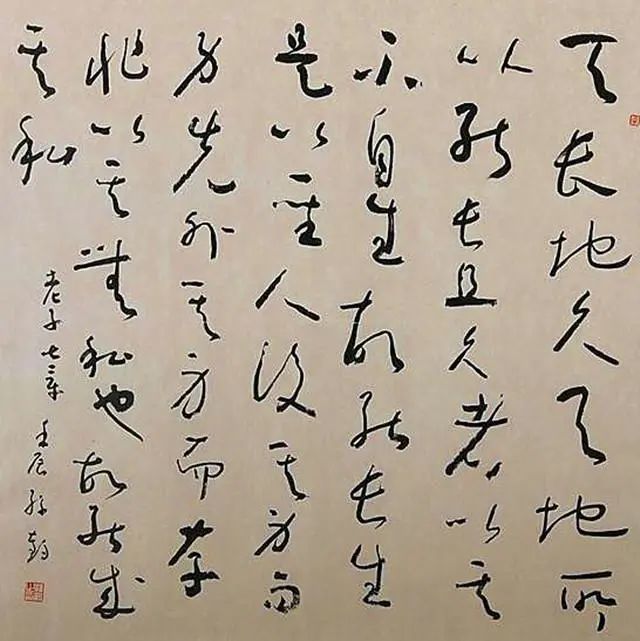 天長地久天地所
以能長且久者以其
不自生故能長生
是以聖人後其身而
身先外其身而存
非以其無私也故能成
其私
老子七章 壬辰 孫